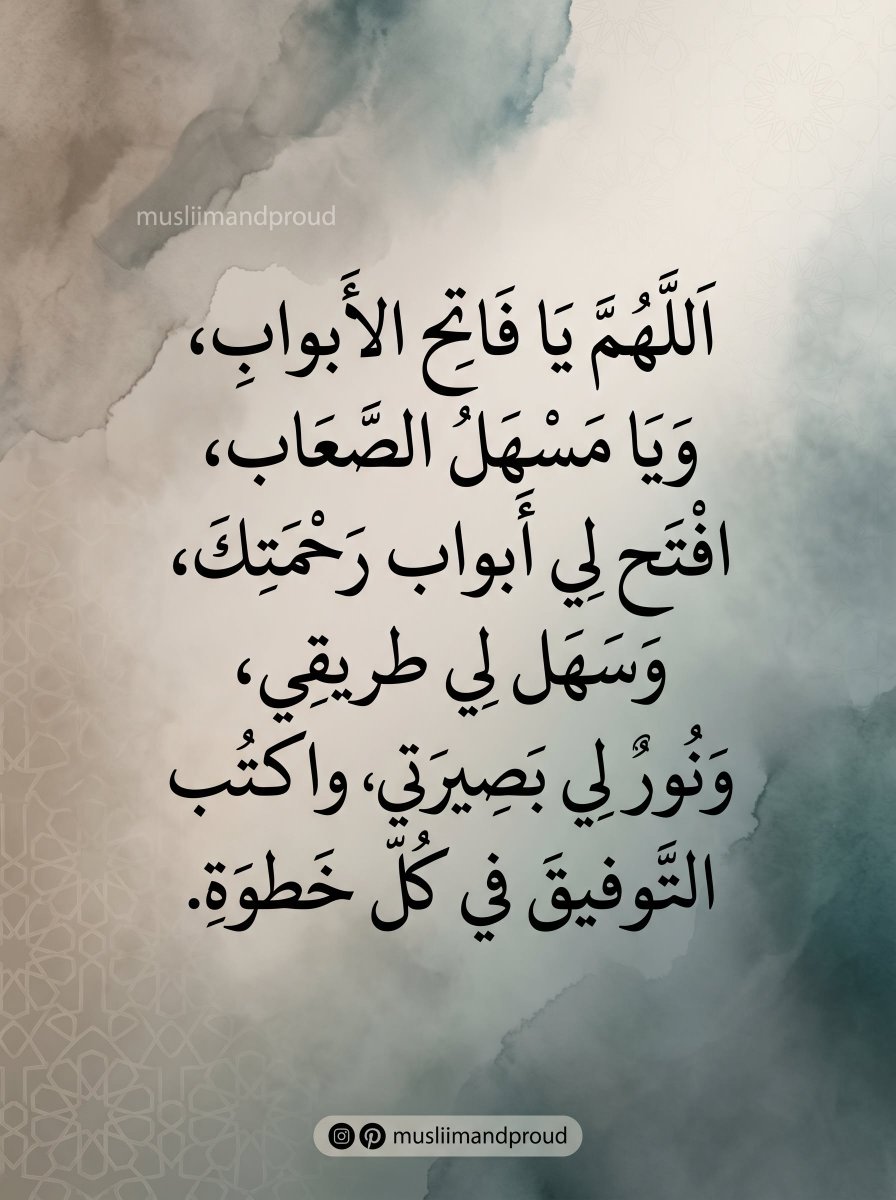 musliimandproud
اَللَّهُمَّ يَا فَاتِح الأَبوابِ،
وَيَا مَسْهَلُ الصَّعَاب،
افْتَح لِي أَبواب رَحْمَتِكَ،
وَسَهَل لِي طريقِي،
وَنُورٌ لِي بَصِيرَتي، واكتُب
التَّوفيقَ في كُلّ خَطوَةِ.
musliimandproud